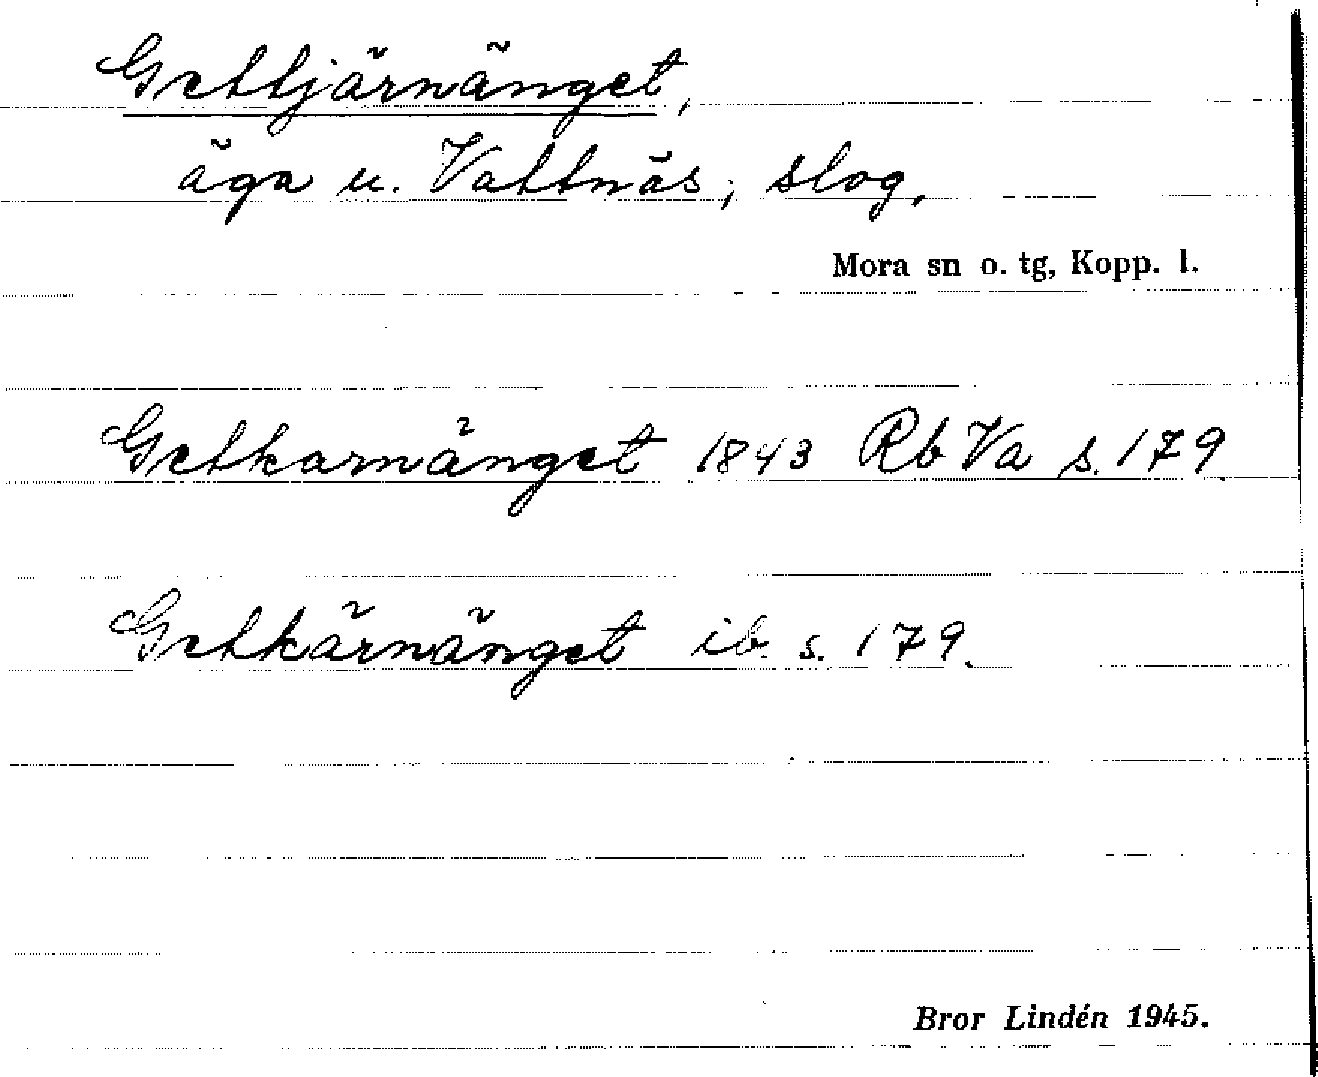 Gettjärnänget,
äga u. Vattnäs; slog.
Mora sn o. tg, Kopp. l.
Getkarnänget 1843 Rb Va s. 179
Getkärnänget ib. s. 179.
Bror Lindén 1945.